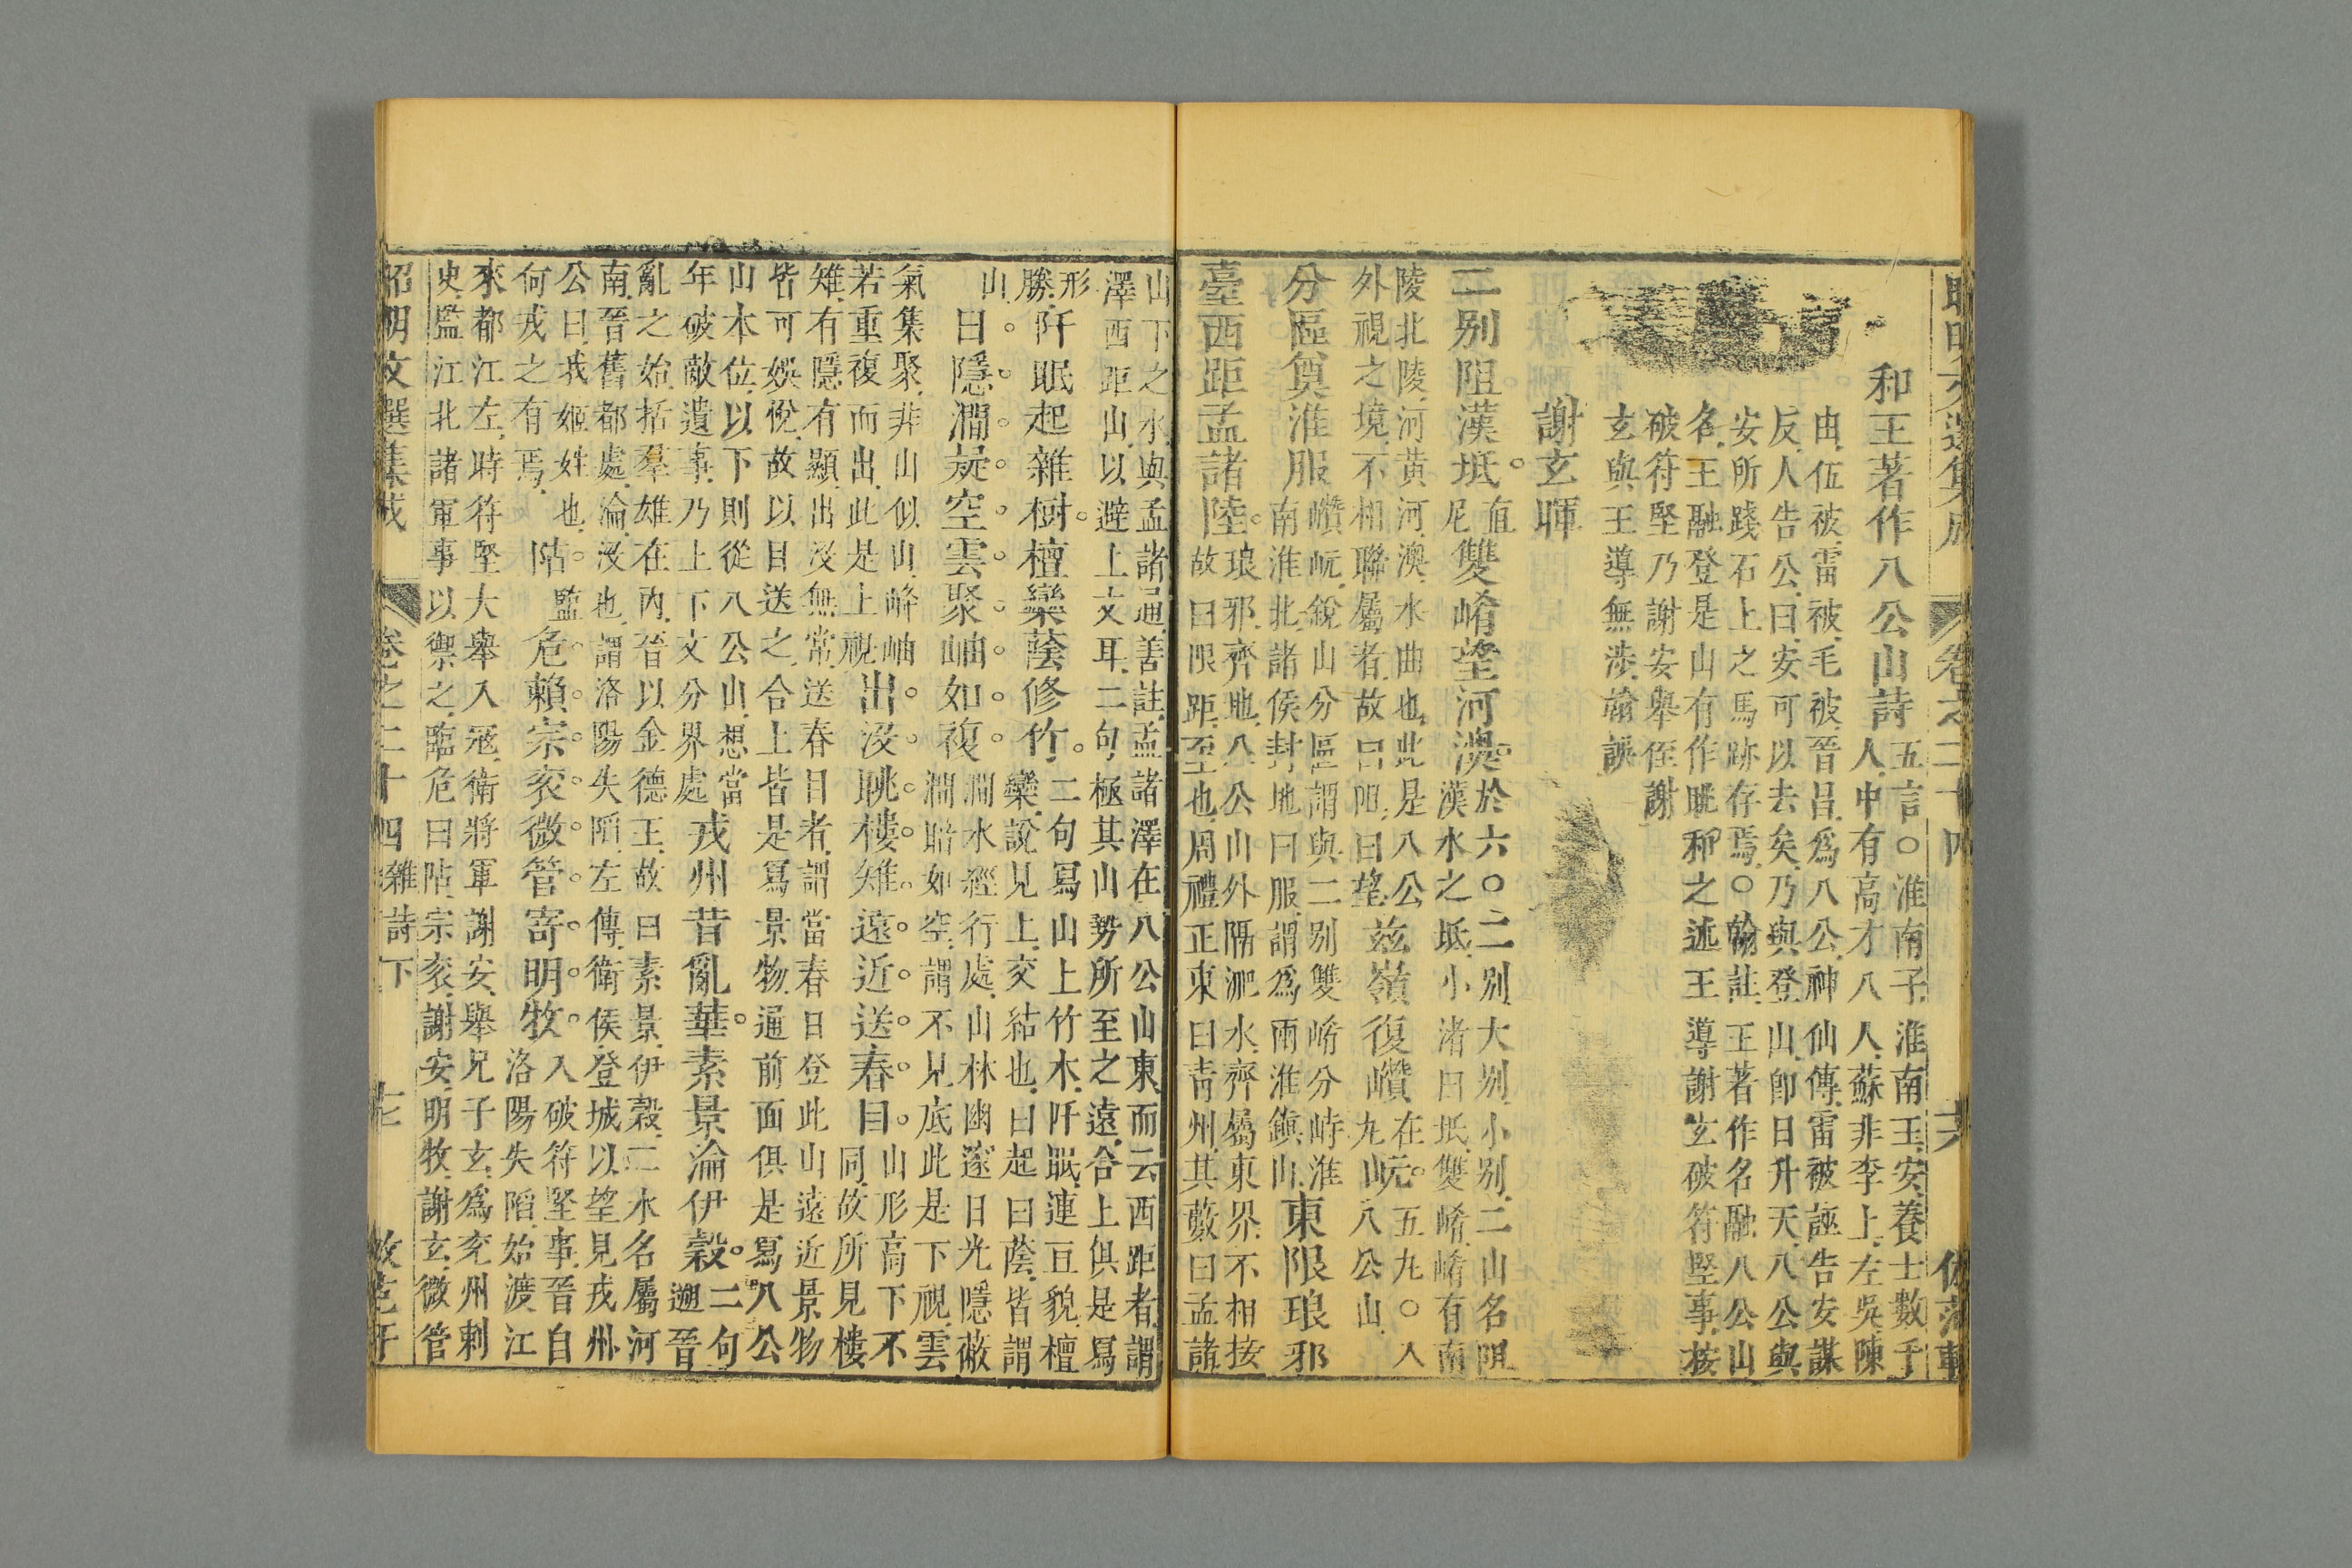 卷之二十四
和王著作八公山詩
五言○淮南子淮南王安養士數千
人中有高才八人蘇非李上左吳陳
由伍被雷被毛被晉昌爲八公神仙傳雷被誣告安謀
反人告公曰安可以去矣乃與登山即日升天八公與
安所踐石上之馬跡存焉○翰註王著作名融八公山
名王融登是山有作眺和之述王導謝玄破符堅事按
破符堅乃謝安舉侄謝
玄與王導無涉翰誤
謝玄暉
二别阻漢坻
直
尼
雙崤望河澳
於六○二别大别小别二山名阻
漢水之坻小渚曰坻雙崤崤有南
陵北陵河黃河澳水曲也此是八公
外視之境不相聯屬者故曰阻曰望
茲嶺復巑
在
九
岏
五九○人
山八公山
分區奠淮服
巑岏銳山分區謂與二别雙崤分峙淮
南淮北諸侯封地曰服謂爲兩淮鎮山
東限琅邪
臺西距孟諸陸
琅邪齊地八公山外隔淝水齊屬東界不相接
故曰限距至也周禮正東曰青州其藪曰孟諸
山下之水與孟諸通善註孟諸澤在八公山東而云西距者謂
澤西距山以避上文耳二句極其山勢所至之遠合上俱是寫
形
勝
阡眠起雜樹檀欒蔭修竹
二句寫山上竹木阡眠連亘貌檀
欒說見上交結也曰起曰蔭皆謂
山
日隱澗凝空雲聚岫如複
澗水經行處山林幽邃日光隱蔽
澗暗如空謂不見底此是下視雲
氣集聚非山似山峰岫
若重複而出此是上視
出没眺樓雉遠近送春目
山形高下不
同故所見樓
雉有隱有顯出没無常送春日者謂當春日登此山遠近景物
皆可娛悅故以目送之合上皆是寫景物通前面俱是寫八公
山本位以下則從八公山想當
年破敵遺事乃上下文分界處
戎州昔亂華素景淪伊穀
二句
遡晉
亂之始括羣雄在内晉以金德王故曰素景伊穀二水名屬河
南晉舊都處淪没也謂洛陽失陷左傳衛侯登城以望見戎州
公曰我姬姓也
何戎之有焉
阽
監
危賴宗衮微管寄明牧
入破符堅事晉自
洛陽失陷始渡江
來都江左時符堅大舉入冦衛將軍謝安舉兄子玄爲兖州刺
史監江北諸軍事以禦之臨危曰阽宗衮謝安明牧謝玄微管
昭明文選集成 卷之二十四 雜詩下